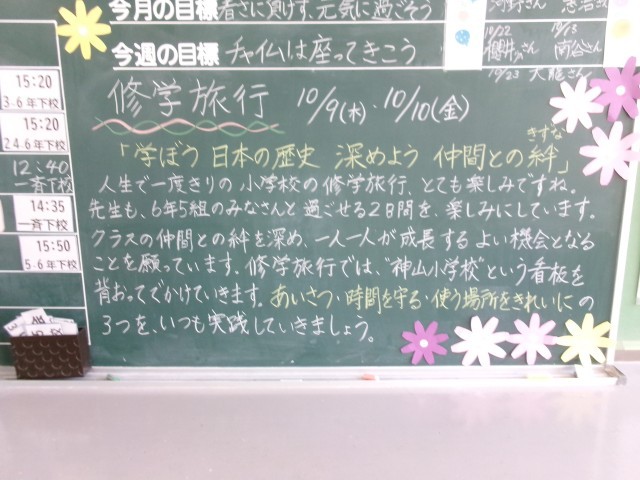 今月の目標 暑さに負けず、元気に過ごそう
今週の目標 チャイムは座ってきこう
10/22
10/15
櫻井さん
10/23 大龍さん
15:20
3-6年下校
15:20
2.4.6年下校
12:40
一斉下校
14:35
一斉下校
15:50
5.6年下校
修学旅行 10/9(木)・10/10(金)
きずな
「学ぼう 日本の歴史 深めよう 仲間との絆」
人生で一度きりの小学校の修学旅行、とても楽しみですね。
先生も、6年5組のみなさんと過ごせる2日間を、楽しみにしています。
クラスの仲間との絆を深め、一人一人が成長するよい機会となる
ことを願っています。修学旅行では、"神山小学校"という看板を
背おってでかけていきます。あいさつ・時間を守る・使う場所をきれいにの
3つを、いつも実践していきましょう。